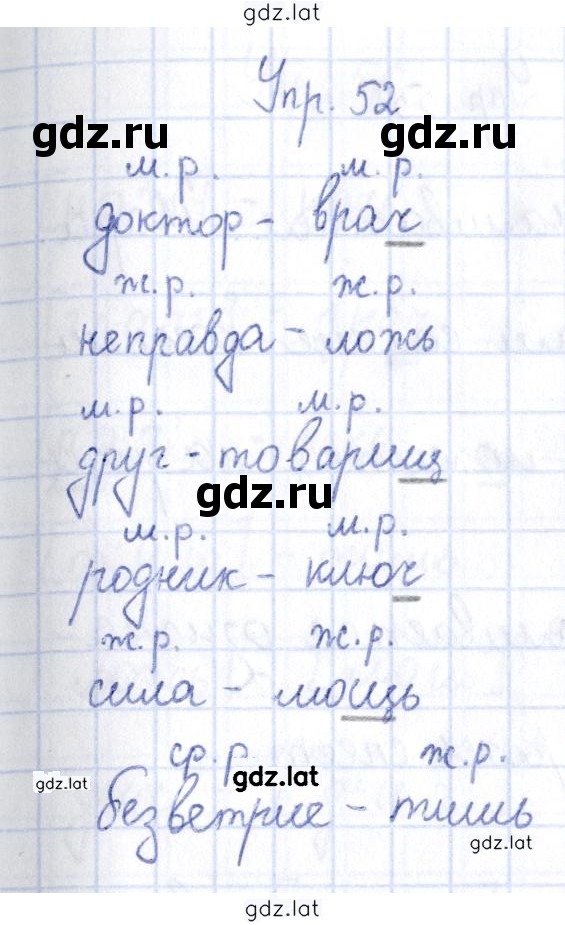 gdz.lat
Упр. 52
gdz.ru
gdz.ru
м.р. м.р.
доктор - врач
ж.р. ж.р.
неправда - ложь
м.р. м.р.
друг - товарищ
gdz.ru
м.р. м.р.
родник - ключ
ж.р. ж.р.
сила - мощь
ср.р. ж.р.
gdz.lat
gdz.lat
безветрие - тишь
gdz.lat
gdz.lat